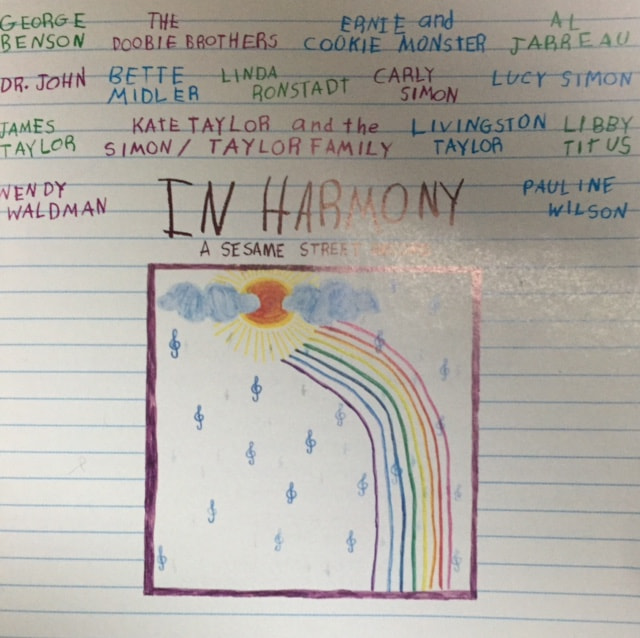 GEORGE THE ERNIE and AL
BENSON DOOBIE BROTHERS COOKIE MONSTER JARREAU
DR. JOHN BETTE LINDA CARLY LUCY SIMON
MIDLER RONSTADT SIMON
JAMES KATE TAYLOR and the LIVINGSTON LIBBY
TAYLOR SIMON / TAYLOR FAMILY TAYLOR TITUS
WENDY PAULINE
WALDMAN WILSON
IN HARMONY
A SESAME STREET